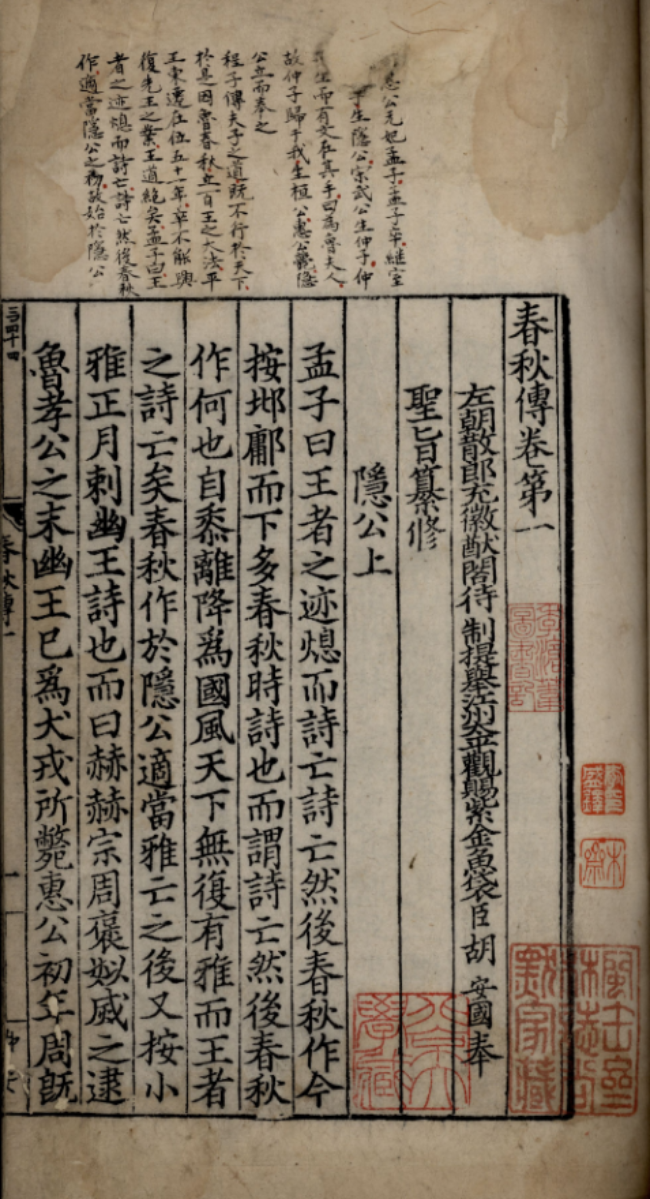 惠公元妃孟子孟子卒継室
生隱公宋武公生仲子仲
生而有文在其手曰爲魯夫人
故仲子歸于我生桓公惠公薨隱
公立而奉之
程子傳夫子之道旣不行於天下
於是因魯春秋立百王之大法平
王東遷在位五十一年卒不能興
復先王之業王道絶矣孟子曰王
者之迹熄而詩亡詩亡然後春秋
作適當隱公之初故始於隱公
春秋傳卷第一
左朝散郎充徽猷閣待制提舉江州太平觀賜紫金魚袋臣胡安國奉
聖旨纂修
隱公上
孟子曰王者之迹熄而詩亡詩亡然後春秋作今
按邶鄘而下多春秋時詩也而謂詩亡然後春秋
作何也自黍離降爲國風天下無復有雅而王者
之詩亡矣春秋作於隱公適當雅亡之後又按小
雅正月刺幽王詩也而曰赫赫宗周褒姒烕之逮
魯孝公之末幽王已爲犬戎所斃惠公初年周旣
春秋傳一